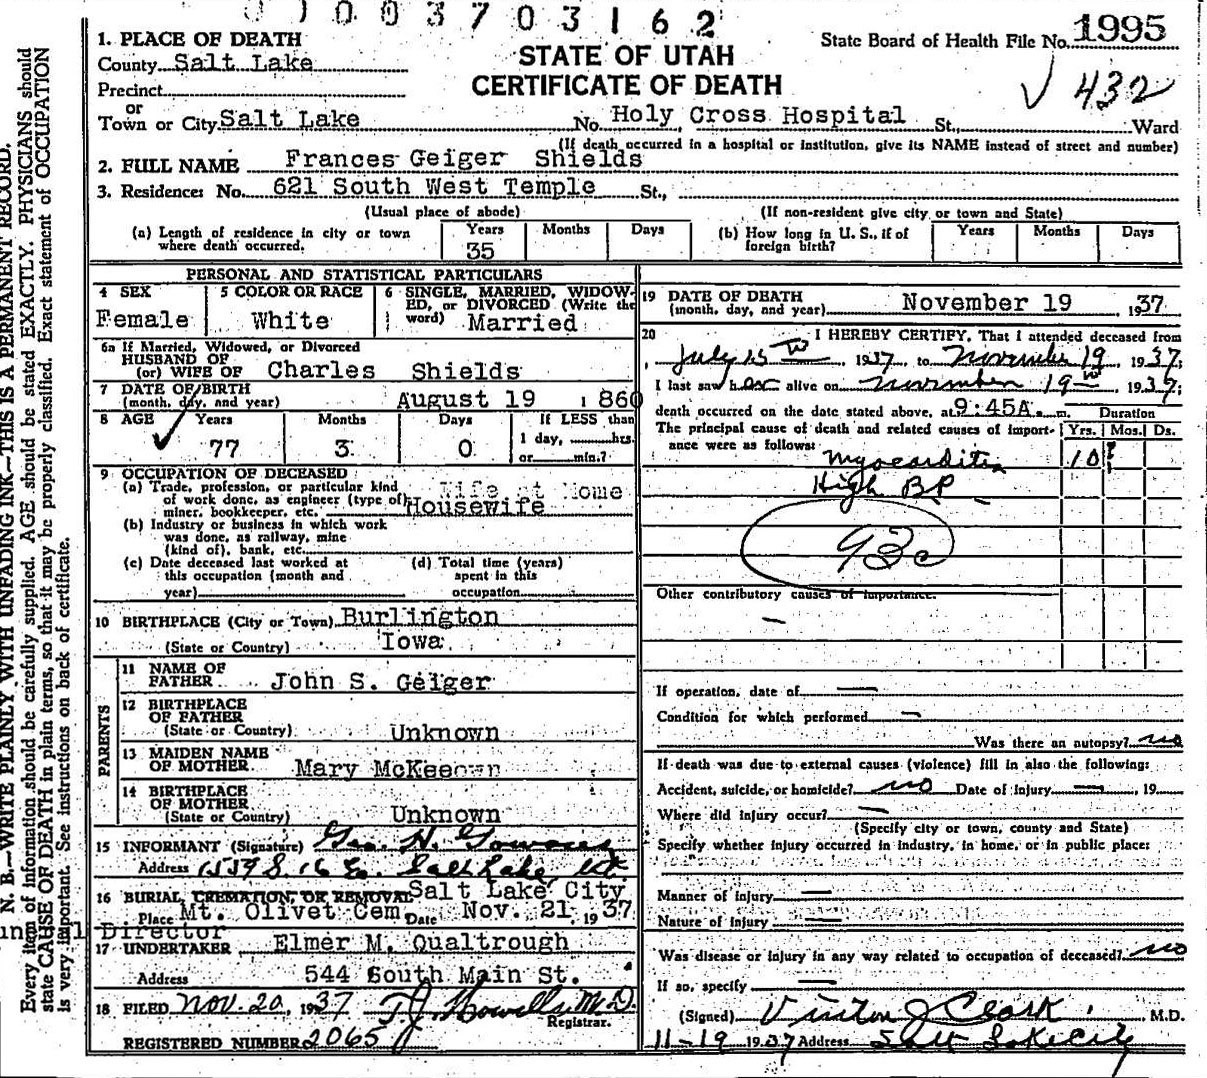 0 1 0 0 3 7 0 3 1 6 2
STATE OF UTAH
CERTIFICATE OF DEATH
State Board of Health File No. 1995
432
1. PLACE OF DEATH
County Salt Lake
Precinct
or
Town or City Salt Lake No. Holy Cross Hospital St., Ward
(If death occurred in a hospital or institution, give its NAME instead of street and number)
2. FULL NAME Frances Geiger Shields
3. Residence: No. 621 South West Temple St.,
(Usual place of abode) (If non-resident give city or town and State)
(a) Length of residence in city or town where death occurred. Years 35 Months Days
(b) How long in U. S., if of foreign birth? Years Months Days
PERSONAL AND STATISTICAL PARTICULARS
4 SEX Female
5 COLOR OR RACE White
6 SINGLE, MARRIED, WIDOWED, or DIVORCED (Write the word) Married
6a If Married, Widowed, or Divorced
HUSBAND OF
(or) WIFE OF Charles Shields
7 DATE OF BIRTH
(month, day, and year) August 19 1860
8 AGE Years 77 Months 3 Days 0 If LESS than 1 day, hrs. or min.?
9 OCCUPATION OF DECEASED
(a) Trade, profession, or particular kind of work done, as engineer (type of) miner, bookkeeper, etc. Wife at Home
Housewife
(b) Industry or business in which work was done, as railway, mine (kind of), bank, etc.
(c) Date deceased last worked at this occupation (month and year)
(d) Total time (years) spent in this occupation
10 BIRTHPLACE (City or Town) Burlington
(State or Country) Iowa
PARENTS
11 NAME OF FATHER John S. Geiger
12 BIRTHPLACE OF FATHER
(State or Country) Unknown
13 MAIDEN NAME OF MOTHER Mary McKeeown
14 BIRTHPLACE OF MOTHER
(State or Country) Unknown
15 INFORMANT (Signature) Geo. N.
Address 1539 S. 16 E. Salt Lake Ut.
16 BURIAL, CREMATION, OR REMOVAL Salt Lake City
Place Mt. Olivet Cem. Date Nov. 21 1937
Director
17 UNDERTAKER Elmer M. Qualtrough
Address 544 South Main St.
18 FILED Nov. 20, 1937 T.J. Howells M.D.
Registrar.
REGISTERED NUMBER 2065
19 DATE OF DEATH
(month, day, and year) November 19 1937
20 I HEREBY CERTIFY, That I attended deceased from
July 15th, 1937 to November 19 1937;
I last saw her alive on November 19th 1937;
death occurred on the date stated above, at 9:45A. m. Duration
The principal cause of death and related causes of importance were as follows: Yrs. Mos. Ds.
Myocarditis 10
High BP
93c
Other contributory causes of importance:
If operation, date of
Condition for which performed
Was there an autopsy? no
If death was due to external causes (violence) fill in also the following:
Accident, suicide, or homicide? no Date of injury 19
Where did injury occur?
(Specify city or town, county and State)
Specify whether injury occurred in industry, in home, or in public place:
Manner of injury
Nature of injury
Was disease or injury in any way related to occupation of deceased? no
If so, specify
(Signed) Vinton J Clark, M.D.
11-19 1937 Address Salt Lake City
N. B.—WRITE PLAINLY WITH UNFADING INK—THIS IS A PERMANENT RECORD.
Every item of information should be carefully supplied. AGE should be stated EXACTLY. PHYSICIANS should
state CAUSE OF DEATH in plain terms, so that it may be properly classified. Exact statement of OCCUPATION
is very important. See instructions on back of certificate.